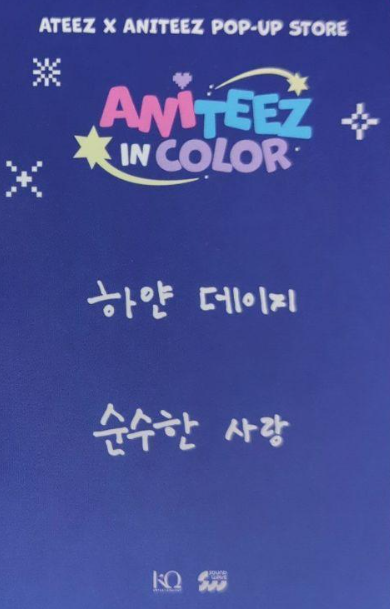 ATEEZ X ANITEEZ POP-UP STORE
ANITEEZ
IN COLOR
하얀 데이지
순수한 사랑
KQ